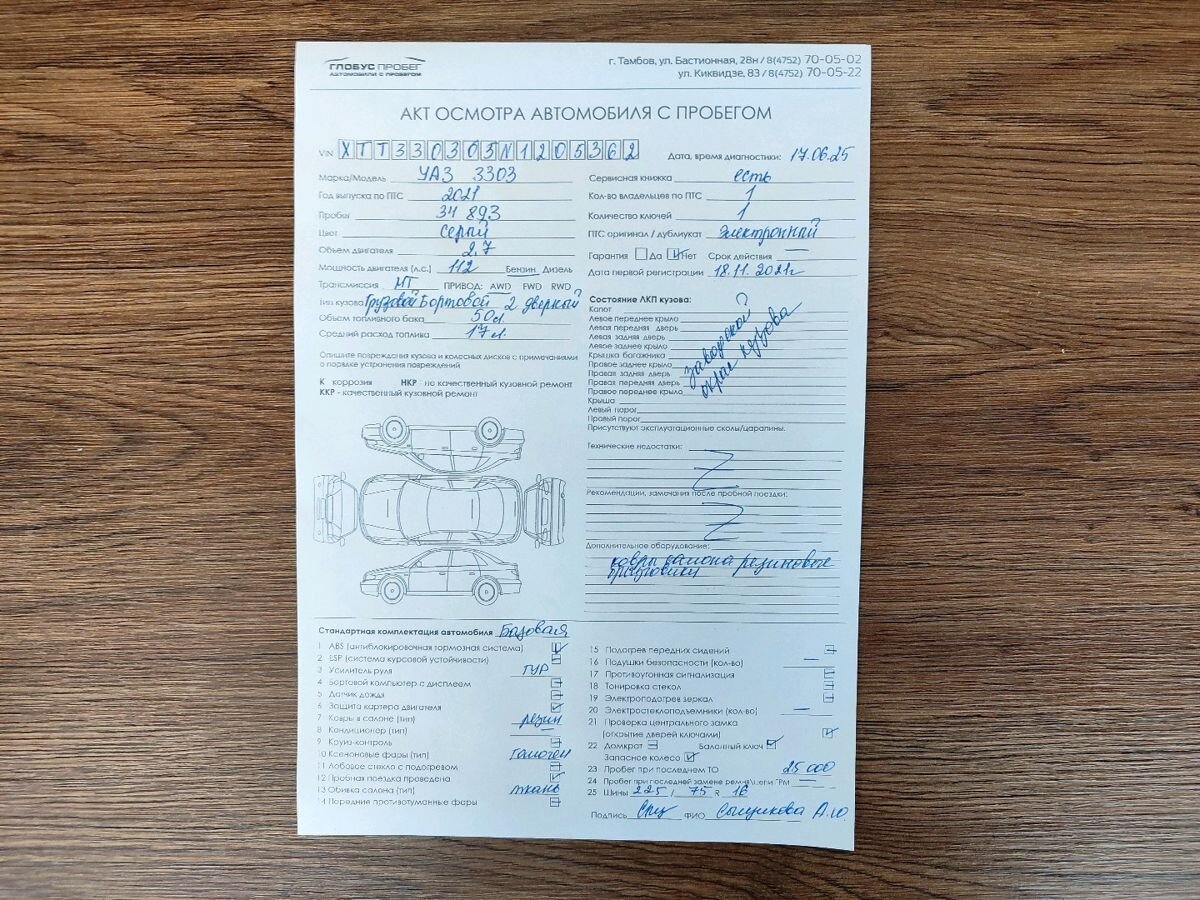 ГЛОБУС ПРОБЕГ
АВТОМОБИЛИ С ПРОБЕГОМ
г. Тамбов, ул. Бастионная, 28н / 8(4752) 70-05-02
ул. Киквидзе, 83 / 8(4752) 70-05-22
АКТ ОСМОТРА АВТОМОБИЛЯ С ПРОБЕГОМ
VIN XTT330305N1205362
Дата, время диагностики: 17.06.25
Марка/Модель УАЗ 3303
Год выпуска по ПТС 2021
Пробег 34 893
Цвет серый
Объем двигателя 2,7
Мощность двигателя (л.с.) 112 Бензин Дизель
Трансмиссия МТ ПРИВОД: AWD FWD RWD
Тип кузова Грузовой Бортовой 2 дверный
Объем топливного бака 50л
Средний расход топлива 17л.
Опишите повреждения кузова и колесных дисков с примечаниями
о порядке устранения повреждений
К коррозия НКР - не качественный кузовной ремонт
ККР - качественный кузовной ремонт
Сервисная книжка есть
Кол-во владельцев по ПТС 1
Количество ключей 1
ПТС оригинал / дубликат электронный
Гарантия Да Нет Срок действия —
Дата первой регистрации 18.11.2021г
Состояние ЛКП кузова:
Капот
Левое переднее крыло
Левая передняя дверь
Левая задняя дверь
Левое заднее крыло
Крышка багажника
Правое заднее крыло
Правая задняя дверь
Правая передняя дверь
Правое переднее крыло
Крыша
Левый порог
Правый порог
заводской
окрас кузова
Присутствуют эксплуатационные сколы/царапины.
Технические недостатки:
Рекомендации, замечания после пробной поездки:
Дополнительное оборудование:
ковры салона резиновые
брызговики
Стандартная комплектация автомобиля Базовая
1 ABS (антиблокировочная тормозная система)
2 ESP (система курсовой устойчивости)
3 Усилитель руля ГУР
4 Бортовой компьютер с дисплеем
5 Датчик дождя
6 Защита картера двигателя
7 Ковры в салоне (тип) резин
8 Кондиционер (тип) —
9 Круиз-контроль
10 Ксеноновые фары (тип) галоген
11 Лобовое стекло с подогревом
12 Пробная поездка проведена
13 Обивка салона (тип) ткань
14 Передние противотуманные фары
15 Подогрев передних сидений
16 Подушки безопасности (кол-во) —
17 Противоугонная сигнализация
18 Тонировка стекол
19 Электроподогрев зеркал
20 Электростеклоподъемники (кол-во) —
21 Проверка центрального замка
(открытие дверей ключами)
22 Домкрат Балонный ключ
Запасное колесо
23 Пробег при последнем ТО 25 000
24 Пробег при последней замене ремня/цепи ГРМ —
25 Шины 225 / 75 R 16
Подпись ФИО А.Ю.